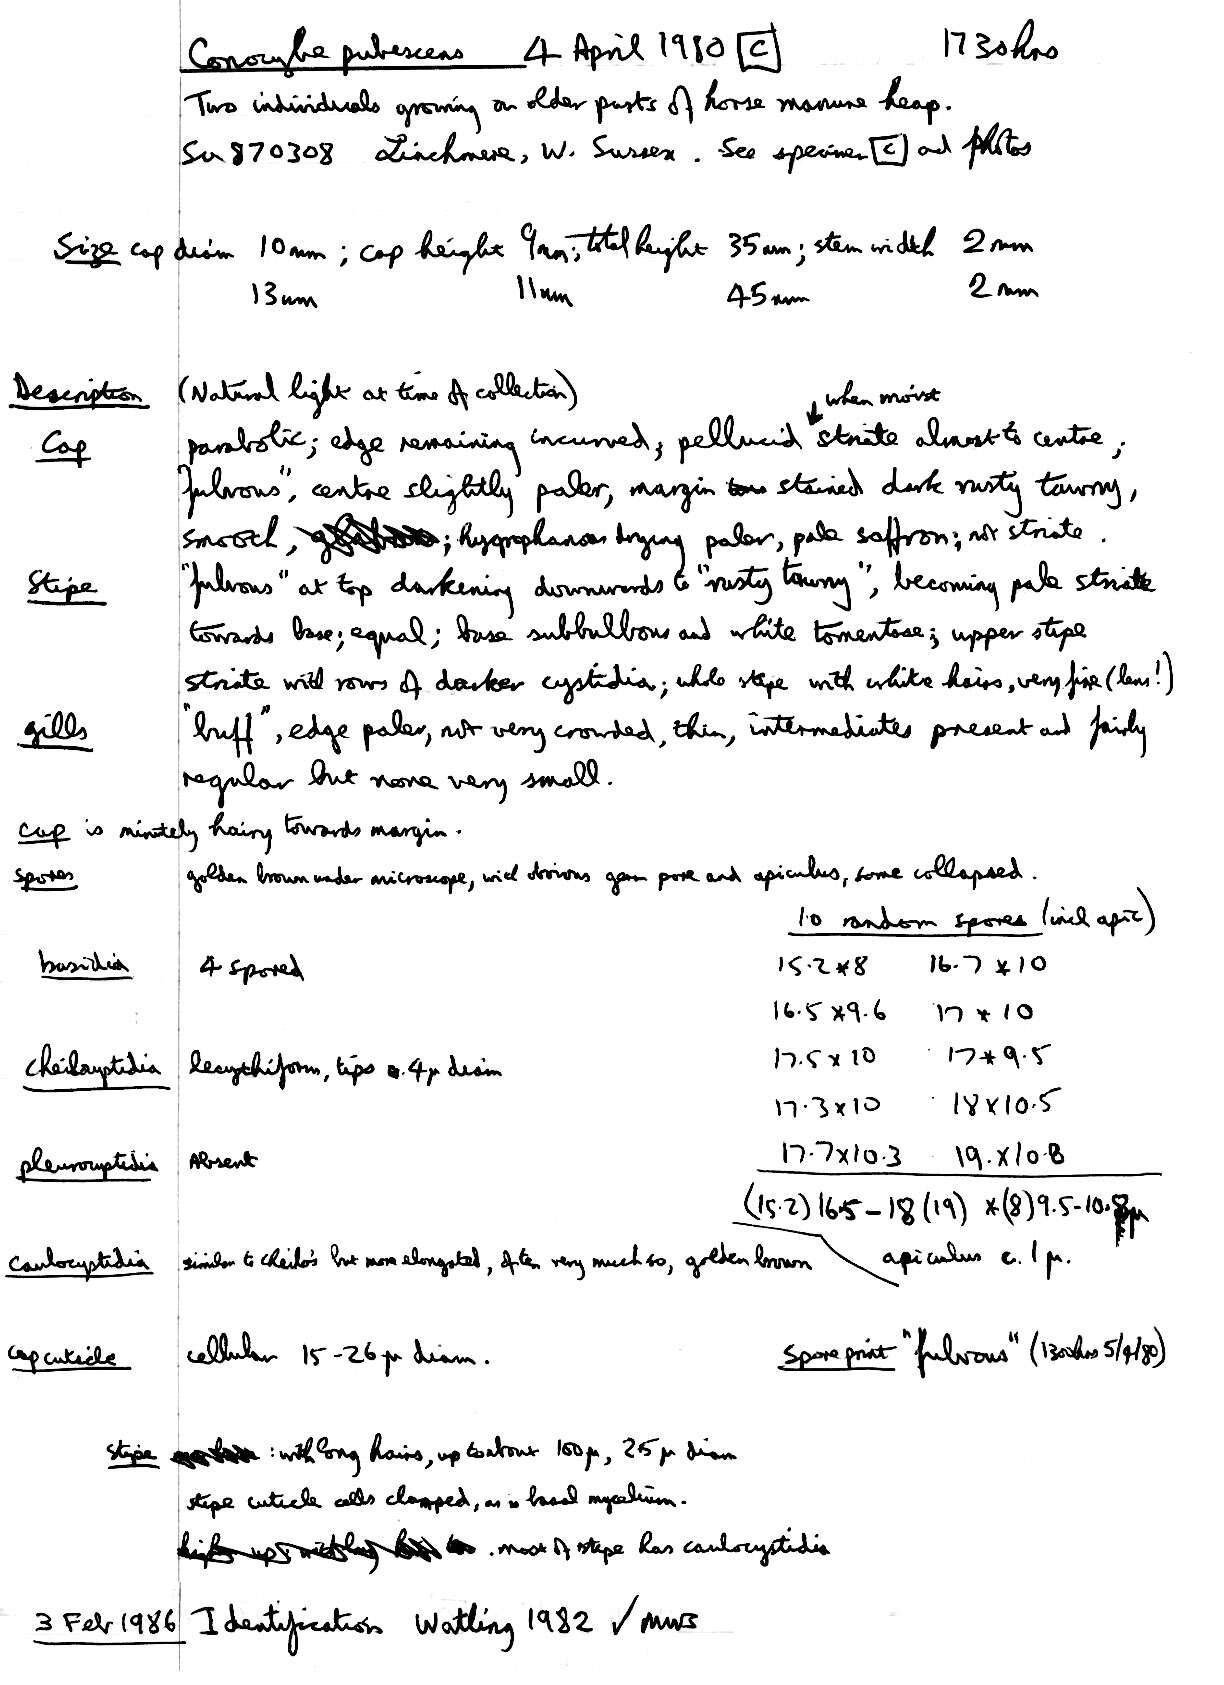 Conocybe pubescens 4 April 1980 [C] 1730hrs
Two individuals growing on older parts of horse manure heap.
SU 870308 Linchmere, W. Sussex. See specimen [C] and photos
Size cap diam 10mm; cap height 9mm; total height 35mm; stem width 2mm
13mm 11mm 45mm 2mm
Description (Natural light at time of collection)
when moist
Cap parabolic; edge remaining incurved; pellucid striate almost to centre;
"fulvous", centre slightly paler, margin stained dark rusty tawny,
smooth, ; hygrophanous drying paler, pale saffron; not striate.
Stipe "fulvous" at top darkening downwards to "rusty tawny", becoming pale striate
towards base; equal; base subbulbous and white tomentose; upper stipe
striate with rows of darker cystidia; whole stipe with white hairs, very fine (lens!)
gills "buff", edge paler, not very crowded, thin, intermediates present and fairly
regular but none very small.
cap is minutely hairy towards margin.
spores golden brown under microscope, with obvious germ pore and apiculus, some collapsed.
10 random spores (incl apic)
basidia 4 spored 15.2 x 8 16.7 x 10
16.5 x 9.6 17 x 10
cheilocystidia lecythiform, tips c. 4µ diam 17.5 x 10 17 x 9.5
17.3 x 10 18 x 10.5
pleurocystidia Absent 17.7 x 10.3 19. x 10.8
(15.2) 16.5 - 18 (19) x (8) 9.5 - 10.8µ
caulocystidia similar to cheilo's but more elongated, often very much so, golden brown apiculus c. 1µ.
cap cuticle cellular 15-26µ diam. Spore print "fulvous" (1300hrs 5/4/80)
stipe : with long hairs, up to about 100µ, 2.5µ diam
stipe cuticle cells clamped, as is basal mycelium.
. most of stipe has caulocystidia
3 Feb 1986 Identification Watling 1982 ✓ MWS